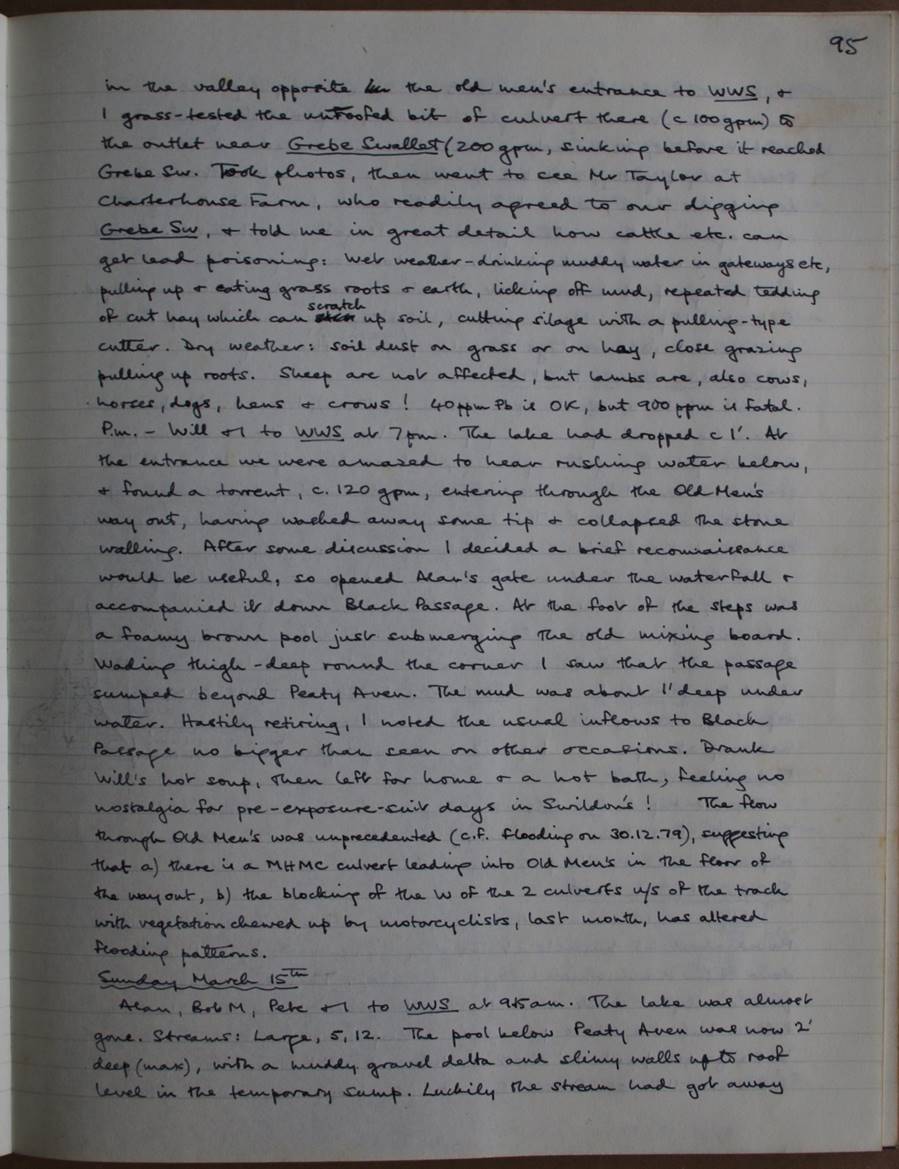 95
in the valley opposite the old men's entrance to WWS, &
I grass-tested the unroofed bit of culvert there (c 100gpm) to
the outlet near Grebe Swallet (200 gpm, sinking before it reached
Grebe Sw. Took photos, then went to see Mr Taylor at
Charterhouse Farm, who readily agreed to our digging
Grebe Sw, & told me in great detail how cattle etc. can
get lead poisoning: Wet weather-drinking muddy water in gateways etc,
pulling up & eating grass roots & earth, licking off mud, repeated tedding
of cut hay which can scratch up soil, cutting silage with a pulling-type
cutter. Dry weather: soil dust on grass or on hay, close grazing
pulling up roots. Sheep are not affected, but lambs are, also cows,
horses, dogs, hens & crows! 40ppm Pb is OK, but 900 ppm is fatal.
P.m. - Will & I to WWS at 7pm. The lake had dropped c 1'. At
the entrance we were amazed to hear rushing water below,
& found a torrent, c. 120 gpm, entering through the Old Men's
way out, having washed away some tip & collapsed the stone
walling. After some discussion I decided a brief reconnaissance
would be useful, so opened Alan's gate under the waterfall &
accompanied it down Black Passage. At the foot of the steps was
a foamy brown pool just submerging the old mixing board.
Wading thigh-deep round the corner I saw that the passage
sumped beyond Peaty Aven. The mud was about 1' deep under
water. Hastily retiring, I noted the usual inflows to Black
Passage no bigger than seen on other occasions. Drank
Will's hot soup, then left for home & a hot bath, feeling no
nostalgia for pre-exposure-suit days in Swildon's! The flow
through Old Men's was unprecedented (c.f. flooding on 30.12.79), suggesting
that a) there is a MHMC culvert leading into Old Men's in the floor of
the way out, b) the blocking of the W of the 2 culverts u/s of the track
with vegetation chewed up by motorcyclists, last month, has altered
flooding patterns.
Sunday March 15th
Alan, Bob M, Pete & I to WWS at 9.45am. The lake was almost
gone. Streams: Large, 5, 12. The pool below Peaty Aven was now 2'
deep (max), with a muddy gravel delta and slimy walls up to roof
level in the temporary sump. Luckily the stream had got away